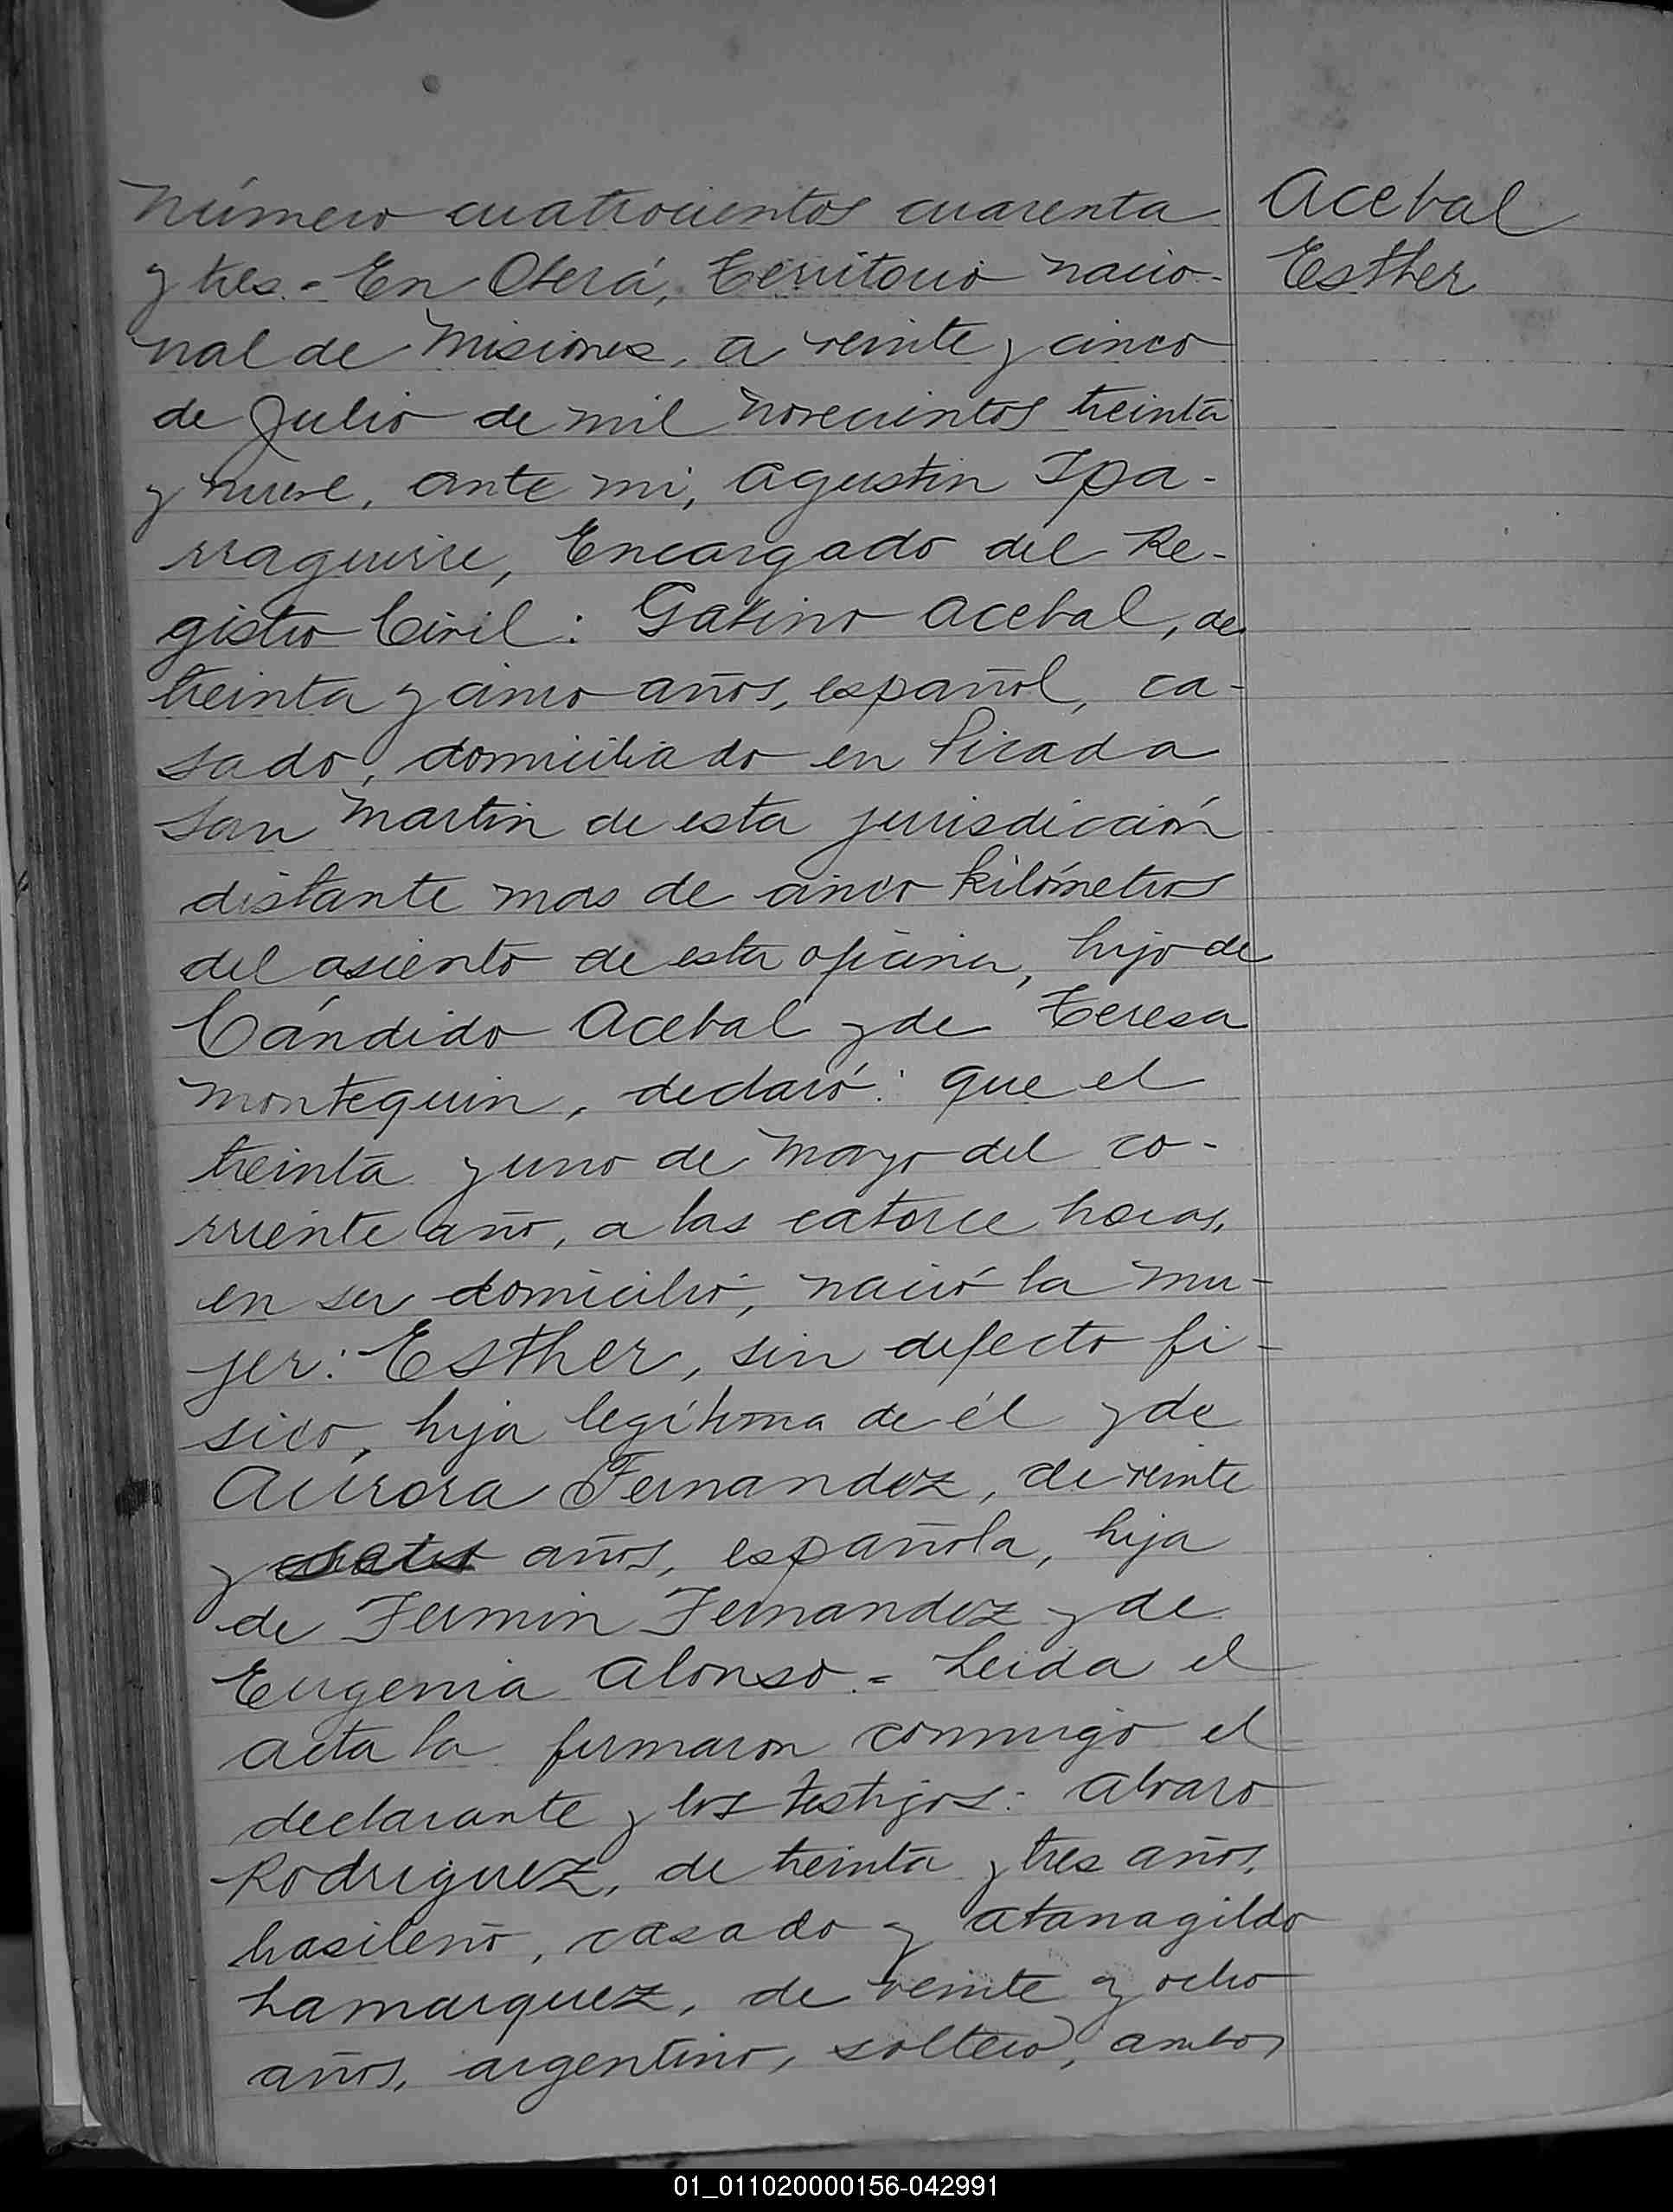 Número cuatrocientos cuarenta
y tres.- En Oberá, Territorio nacio-
nal de Misiones, a veinte y cinco
de Julio de mil novecientos treinta
y nueve, ante mi, Agustin Ipa-
rraguirre, Encargado del Re-
gistro Civil: Gabino Acebal, de
treinta y cinco años, español, ca-
sado, domiciliado en Picada
San Martin de esta jurisdicción
distante mas de cinco kilómetros
del asiento de esta oficina, hijo de
Cándido Acebal y de Teresa
Montequin, declaró: que el
treinta y uno de Mayo del co-
rriente año, a las catorce horas,
en su domicilio, nació la mu-
jer: Esther, sin defecto fi-
sico, hija legítima de él y de
Aurora Fernandez, de veinte
y años, española, hija
de Fermin Fernandez y de
Eugenia Alonso.- Leida el
acta la firmaron conmigo el
declarante y los testigos: Alvaro
Rodriguez, de treinta y tres años,
brasileño, casado y Atanagildo
Lamarquez, de veinte y ocho
años, argentino, soltero, ambos
Acebal
Esther
01_011020000156-042991